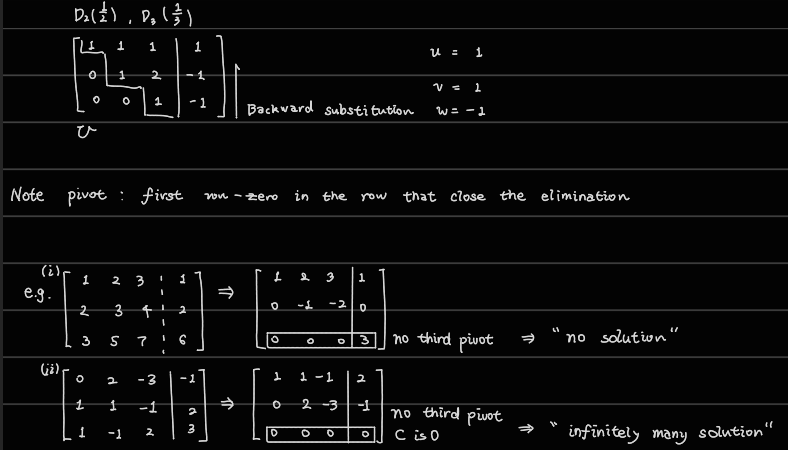 D₂(1/2) , D₃(1/3)
[1 1 1 | 1] u = 1
[0 1 2 | -1] v = 1
[0 0 1 | -1] Backward substitution w = -1
U
Note pivot : first non-zero in the row that close the elimination
e.g. (i) [1 2 3 | 1] ⇒ [1 2 3 | 1]
[2 3 4 | 2] [0 -1 -2 | 0]
[3 5 7 | 6] [0 0 0 | 3] no third pivot ⇒ "no solution"
(ii) [0 2 -3 | -1] ⇒ [1 1 -1 | 2]
[1 1 -1 | 2] [0 2 -3 | -1] no third pivot
[1 -1 2 | 3] [0 0 0 | 0] C is 0 ⇒ "infinitely many solution"